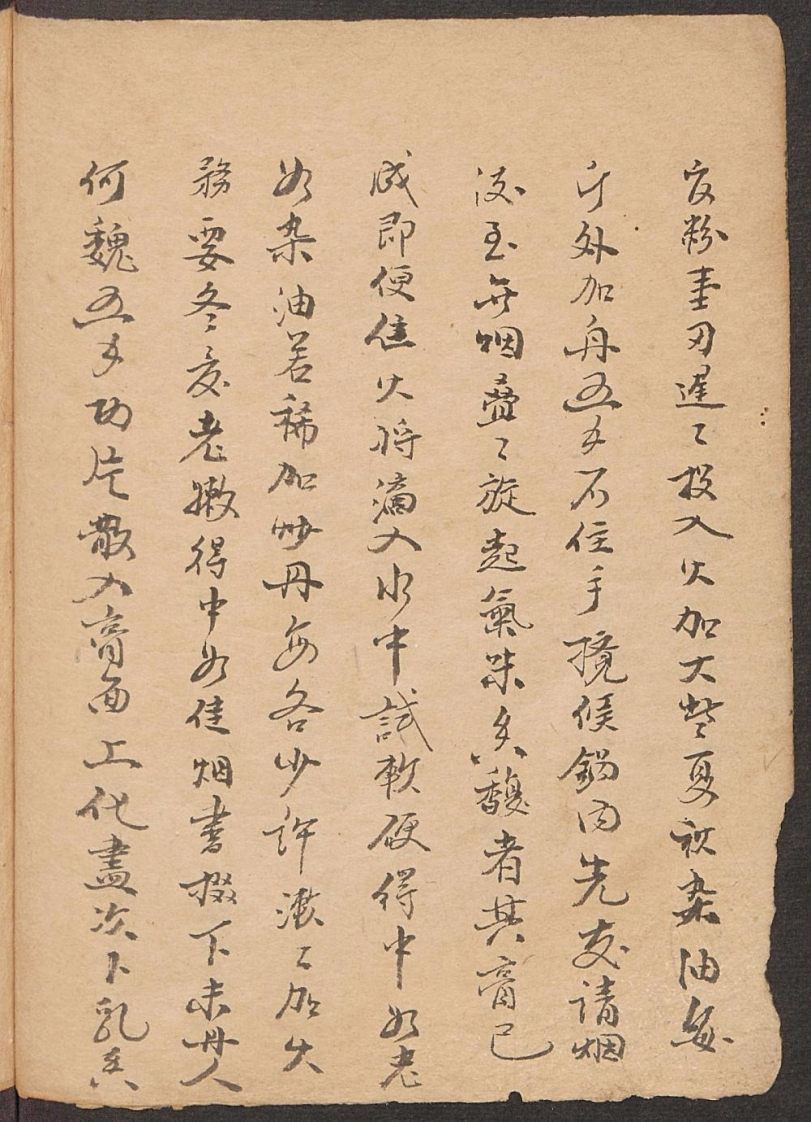 定粉壹刃遲〻投入火加大些夏秋桑油每
斤外加丹五錢不住手攪候鍋內先发請烟
後至無烟疊〻旋起氣味香馥者其膏已
成即便住火將滴入水中試軟硬得中如老
加桑油若稀加炒丹每各少許漸〻加火
務要冬夏老嫩得中如住烟盡掇下未丹人
何魏五錢切片散入膏面上化盡次下乳香